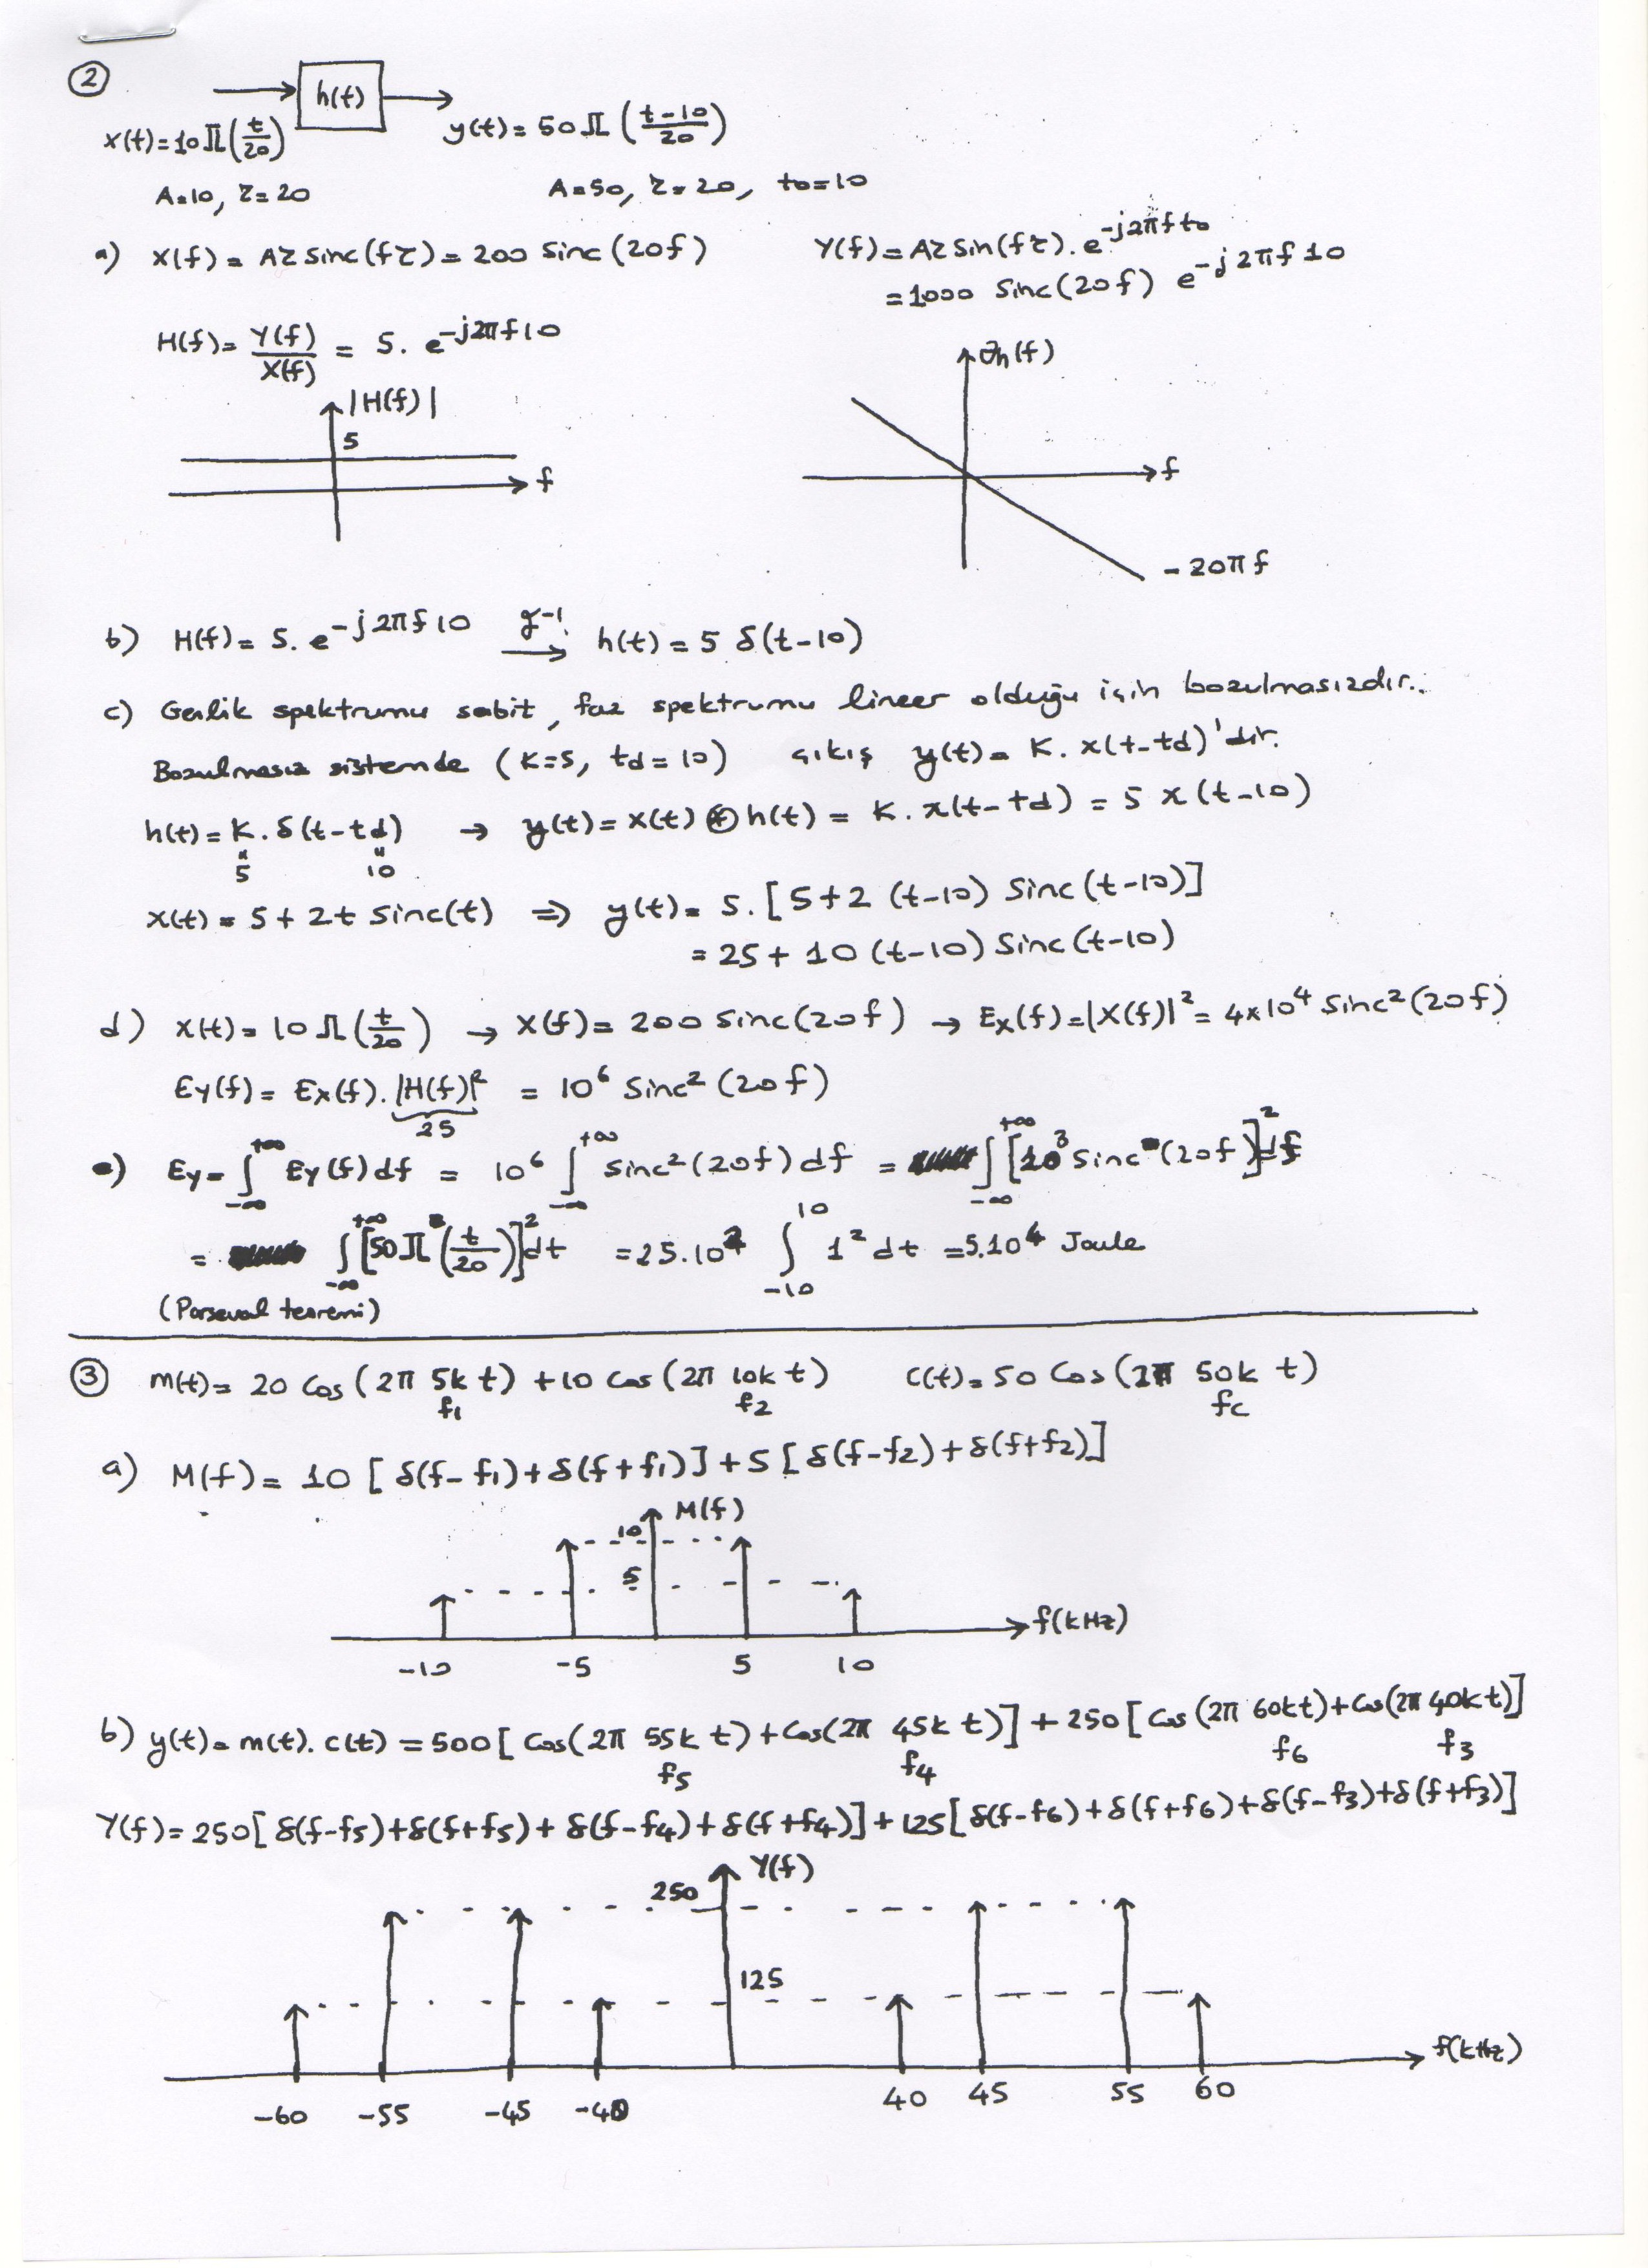 ②
h(t)
x(t)=10 Π(t/20)
y(t)= 50 Π((t-10)/20)
A=10, τ=20
A=50, τ=20, to=10
a) X(f) = Aτ Sinc(fτ) = 200 Sinc(20f)
Y(f) = Aτ Sin(fτ). e^-j2πfto
= 1000 Sinc(20f) e^-j2πf10
H(f) = Y(f)/X(f) = 5. e^-j2πf10
|H(f)|
5
f
θh(f)
f
-20πf
b) H(f) = 5. e^-j2πf10 F^-1 → h(t) = 5 δ(t-10)
c) Genlik spektrumu sabit, faz spektrumu lineer olduğu için bozulmasızdır.
Bozulmasız sistemde (K=5, td=10) çıkış y(t) = K. x(t-td)'dir.
h(t) = K. δ(t-td) → y(t) = x(t) ⊛ h(t) = K. x(t-td) = 5 x(t-10)
" "
5 10
x(t) = 5+2t Sinc(t) ⇒ y(t) = 5. [5+2 (t-10) Sinc(t-10)]
= 25+ 10 (t-10) Sinc(t-10)
d) x(t) = 10 Π(t/20) → X(f) = 200 Sinc(20f) → Ex(f) = |X(f)|² = 4x10⁴ Sinc²(20f)
Ey(f) = Ex(f). |H(f)|² = 10⁶ Sinc²(20f)
25
e) Ey = ∫_-∞^+∞ Ey(f) df = 10⁶ ∫_-∞^+∞ Sinc²(20f) df = ∫_-∞^+∞ [10³ Sinc(20f)]² df
= ∫_-∞^+∞ [50 Π(t/20)]² dt = 25.10² ∫_-10^10 1² dt = 5.10⁴ Joule
(Parseval teoremi)
③ m(t) = 20 Cos(2π 5k t) + 10 Cos(2π 10k t) C(t) = 50 Cos(2π 50k t)
f1 f2 fc
a) M(f) = 10 [δ(f-f1)+δ(f+f1)] + 5 [δ(f-f2)+δ(f+f2)]
M(f)
10
5
f(kHz)
-10 -5 5 10
b) y(t) = m(t). c(t) = 500 [Cos(2π 55k t) + Cos(2π 45k t)] + 250 [Cos(2π 60kt) + Cos(2π 40kt)]
f5 f4 f6 f3
Y(f) = 250[δ(f-f5)+δ(f+f5)+δ(f-f4)+δ(f+f4)] + 125[δ(f-f6)+δ(f+f6)+δ(f-f3)+δ(f+f3)]
Y(f)
250
125
f(kHz)
-60 -55 -45 -40 40 45 55 60